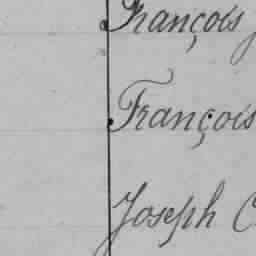 François
François
Joseph C